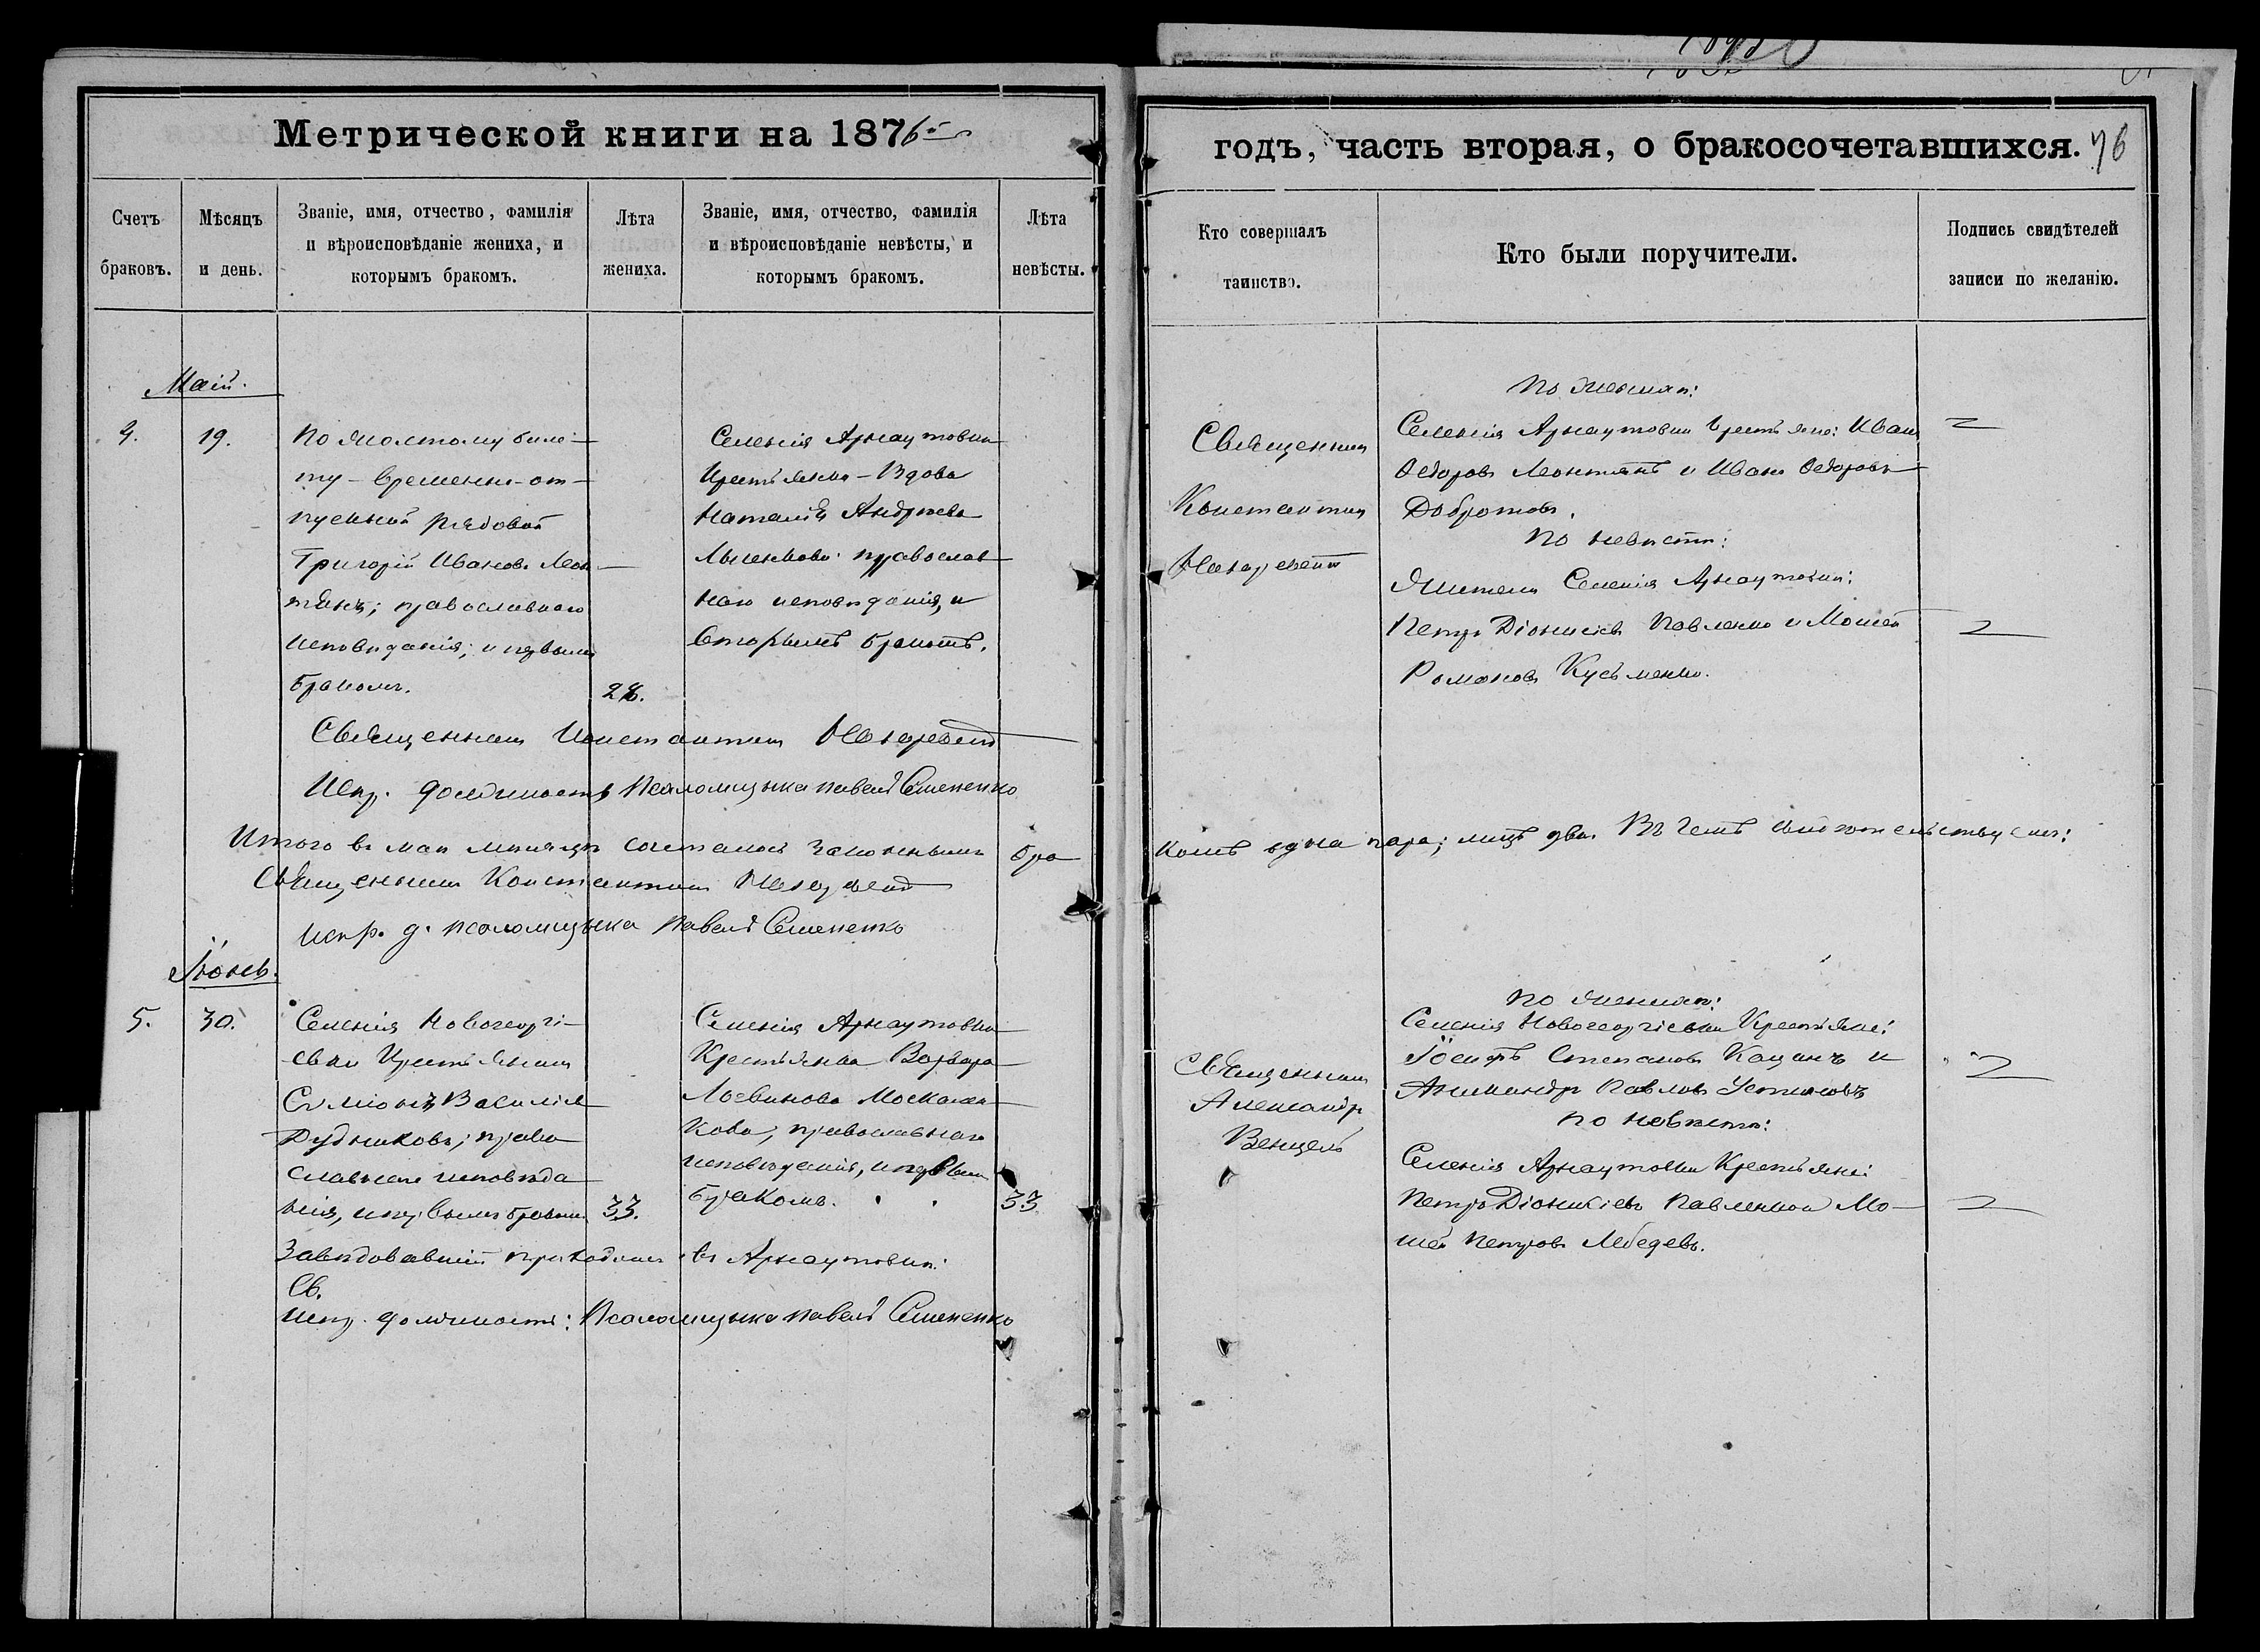 Метрической книги на 1876
годъ, часть вторая, о бракосочетавшихся. 76
Счетъ браковъ.
Мѣсяцъ и день.
Званіе, имя, отчество, фамилія и вѣроисповѣданіе жениха, и которымъ бракомъ.
Лѣта жениха.
Званіе, имя, отчество, фамилія и вѣроисповѣданіе невѣсты, и которымъ бракомъ.
Лѣта невѣсты.
Кто совершалъ таинство.
Кто были поручители.
Подпись свидѣтелей записи по желанію.
Маій.
4.
19.
По желтому биле-
ту - временно-от-
пускной рядовой
Григорій Ивановъ Леон-
тянъ; православнаго
исповѣданія, и первымъ
бракомъ.
28.
Селенія Арнаутовки
Крестьянка - Вдова
Наталія Андреева
православ
наго исповѣданія, и
вторымъ бракомъ.
Священникъ
Константинъ
По женихѣ:
Селенія Арнаутовки Крестьяне: Иванъ
Ѳедоровъ Леонтянъ и Иванъ Ѳедоровъ
Добротовъ.
По невѣстѣ:
Жители Селенія Арнаутовки:
Петръ Діонисіевъ Павленко и Моисей
Романовъ Кусьменко.
Священникъ Константинъ
Испр. должность Псаломщика Павелъ Семененко
Итого въ маѣ мѣсяцѣ сочеталось законнымъ бра
комъ одна пара; лицъ два. Въ чемъ свидѣтельствуемъ:
Священникъ Константинъ
испр. д. псаломщика Павелъ Семененко
Іюнь.
5.
30.
Селенія Новогеоргі-
евки Крестьянинъ
Сѵмеонъ Василіевъ
Дудниковъ; право
славнаго исповѣда
нія, и первымъ бракомъ
33.
Селенія Арнаутовки
Крестьянка Варвара
Логвинова Москален
кова, православнаго
исповѣданія, и первымъ
бракомъ.
33
Священникъ
Александръ
Венцель
По женихѣ:
Селенія Новогеоргіевки Крестьяне:
Іосифъ Степановъ Кацанъ и
Александръ Павловъ Устиновъ
по невѣстѣ:
Селенія Арнаутовки Крестьяне:
Петръ Діонисіевъ Павленко и Мо-
исей Петровъ Лебедевъ.
Завѣдовавшій приходомъ въ Арнаутовкѣ:
Св.
испр. должность: Псаломщика Павелъ Семененко